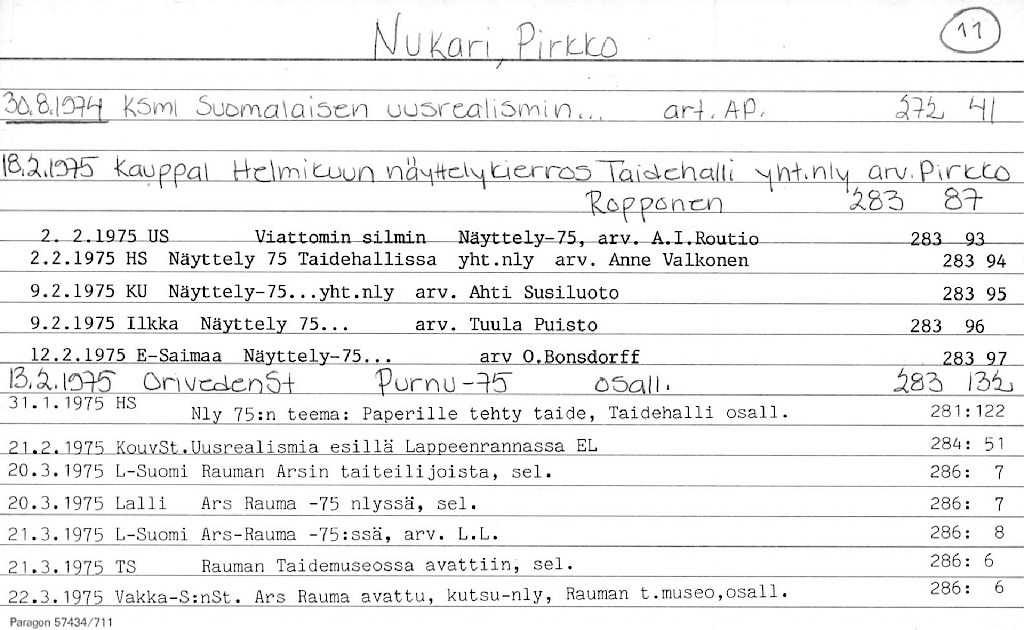 Nukari, Pirkko 11
30.8.1974 KSml Suomalaisen uusrealismin... art. AP. 272 41
18.2.1975 Kauppal Helmikuun näyttelykierros Taidehalli yht.nly arv. Pirkko
Ropponen 283 87
2. 2.1975 US Viattomin silmin Näyttely-75, arv. A.I.Routio 283 93
2.2.1975 HS Näyttely 75 Taidehallissa yht.nly arv. Anne Valkonen 283 94
9.2.1975 KU Näyttely-75...yht.nly arv. Ahti Susiluoto 283 95
9.2.1975 Ilkka Näyttely 75... arv. Tuula Puisto 283 96
12.2.1975 E-Saimaa Näyttely-75... arv O.Bonsdorff 283 97
13.2.1975 OrivedenSt Purnu-75 osall. 283 132
31.1.1975 HS Nly 75:n teema: Paperille tehty taide, Taidehalli osall. 281:122
21.2.1975 KouvSt.Uusrealismia esillä Lappeenrannassa EL 284: 51
20.3.1975 L-Suomi Rauman Arsin taiteilijoista, sel. 286: 7
20.3.1975 Lalli Ars Rauma -75 nlyssä, sel. 286: 7
21.3.1975 L-Suomi Ars-Rauma -75:ssä, arv. L.L. 286: 8
21.3.1975 TS Rauman Taidemuseossa avattiin, sel. 286: 6
22.3.1975 Vakka-S:nSt. Ars Rauma avattu, kutsu-nly, Rauman t.museo,osall. 286: 6
Paragon 57434/711